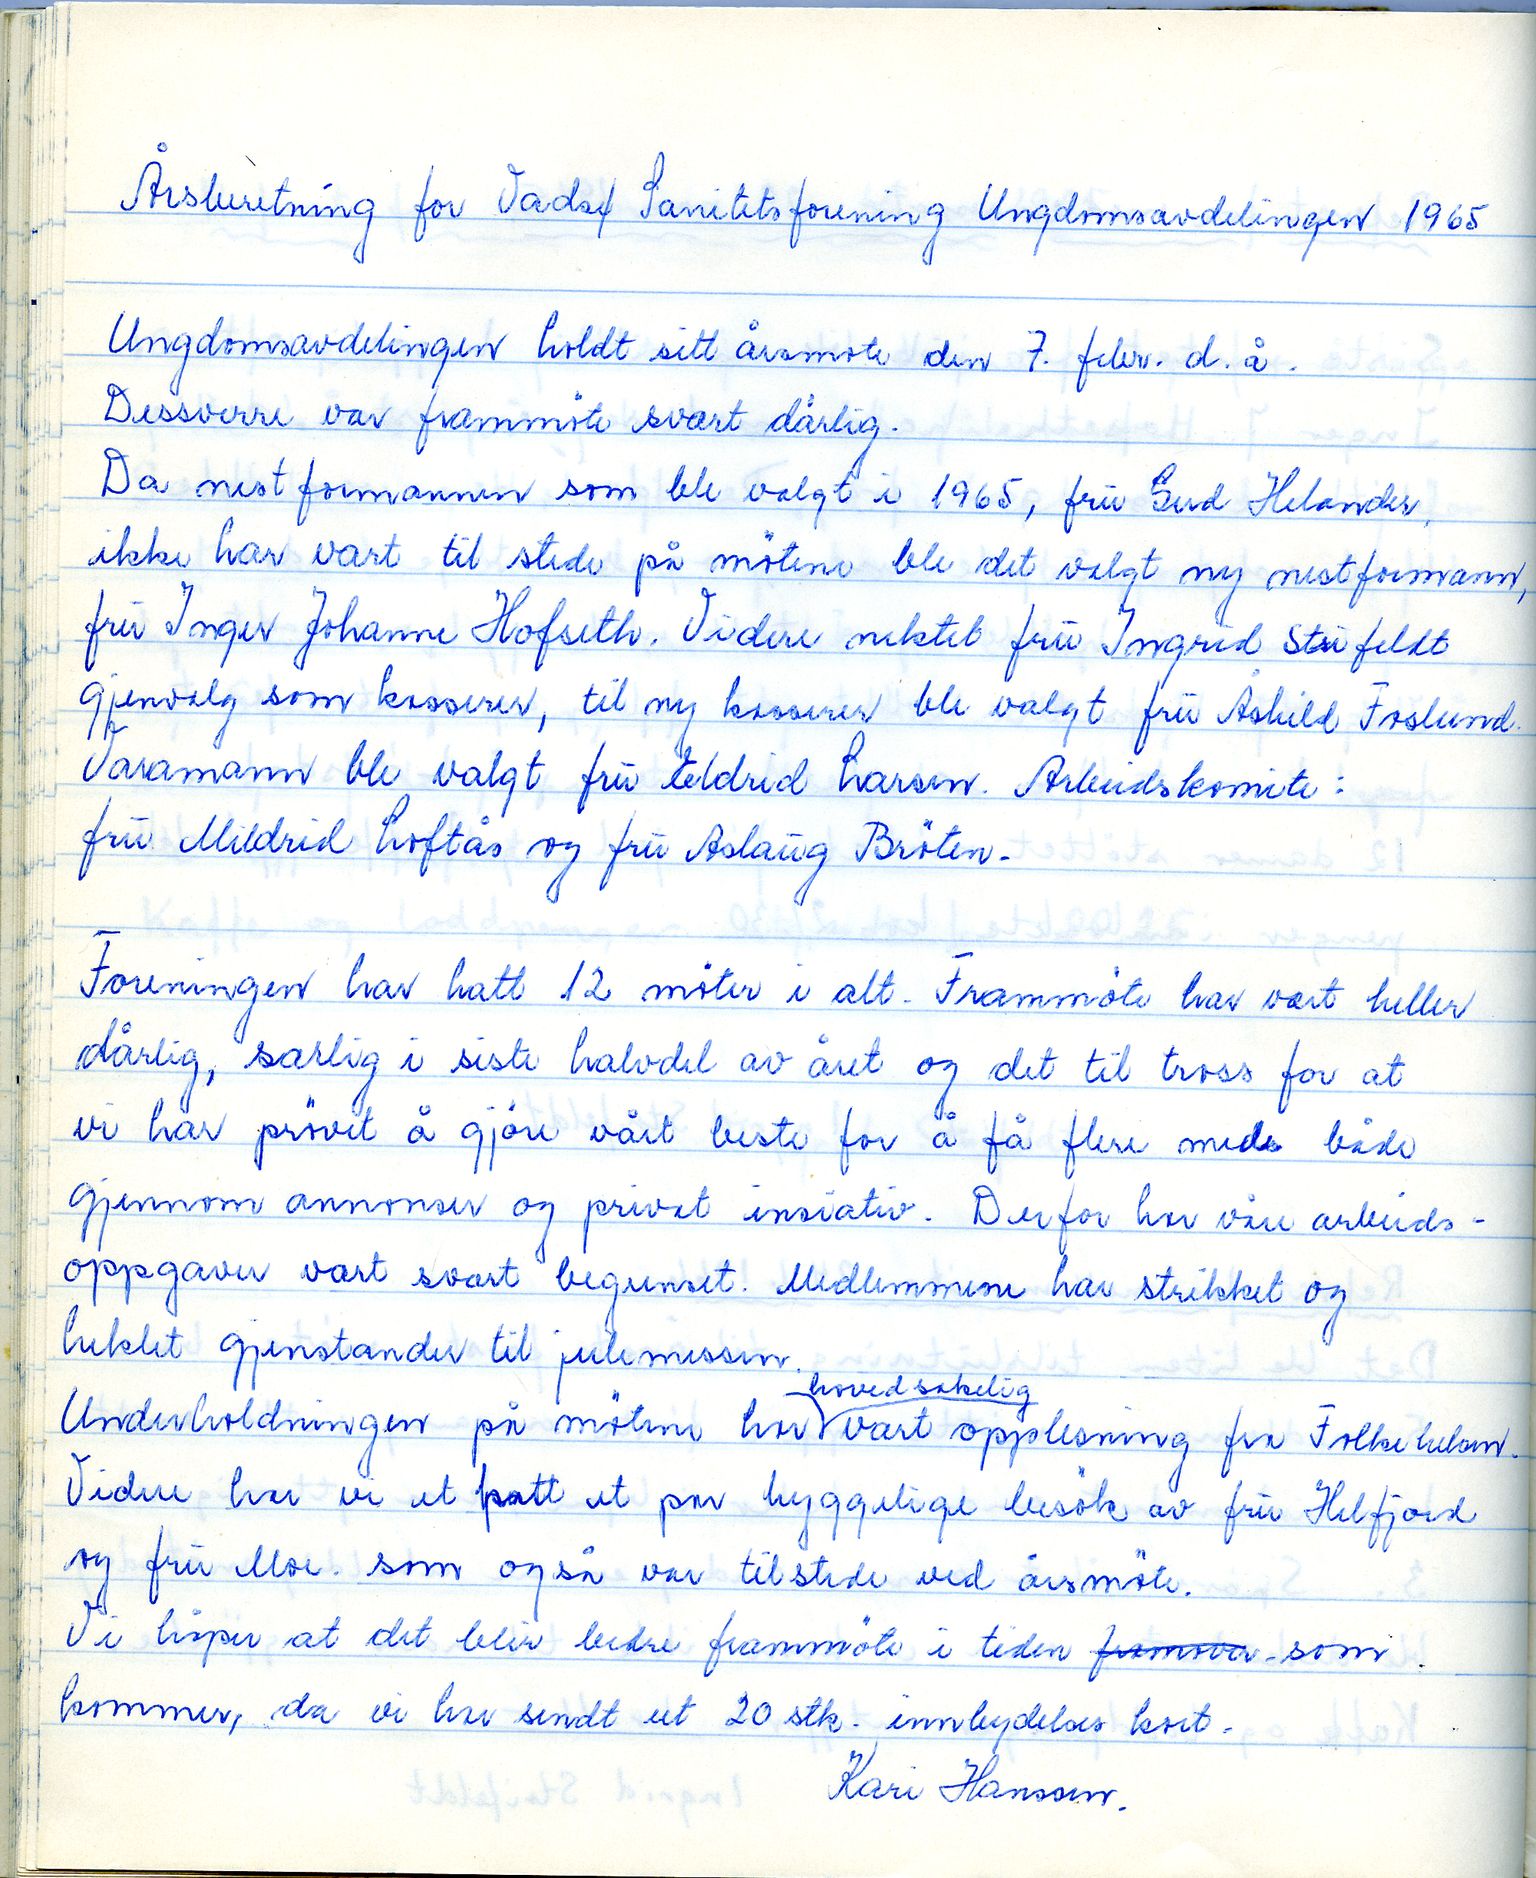 Årsberetning for Vadsø Sanitetsforening Ungdomsavdelingen 1965
Ungdomsavdelingen holdt sitt årsmøte den 7. febr. d. å.
Dessverre var frammöte svært dårlig.
Da nestformannen som ble valgt i 1965, fru Gud Helander,
ikke har vært til stede på mötene ble det valgt ny nestformann,
fru Inger Johanne Hofseth. Videre nektet fru Ingrid Stifeldt
gjenvalg som kasserer, til ny kasserer ble valgt fru Åshild Foslund.
Varamann ble valgt fru Eldrid Larsen. Arbeidskomite:
fru Mildrid Loftås og fru Aslaug Bröten.
Foreningen har hatt 12 möter i alt. Frammöte har vært heller
dårlig, særlig i siste halvdel av året og det til tross for at
vi har prövet å gjöre vårt beste for å få flere med både
gjennom annonser og privat insiativ. Derfor har våre arbeids-
oppgaver vært svært begrenset. Medlemmene har strikket og
heklet gjenstander til julemessen.
Underholdningen på mötene har hovedsakelig vært opplesning fra Folkehelsen.
Videre har vi et hatt et par hyggelige besök av fru Helfjord
og fru Moe. som også var tilstede ved årsmöte.
Vi håper at det blir bedre frammöte i tiden framover som
kommer, da vi har sendt ut 20 stk. innbydelses kort.
Kari Hanssen.